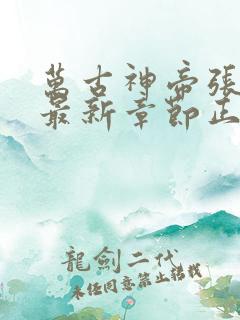 萬古神帝張
最新章節正
龍劍二代
未經同意禁止轉載